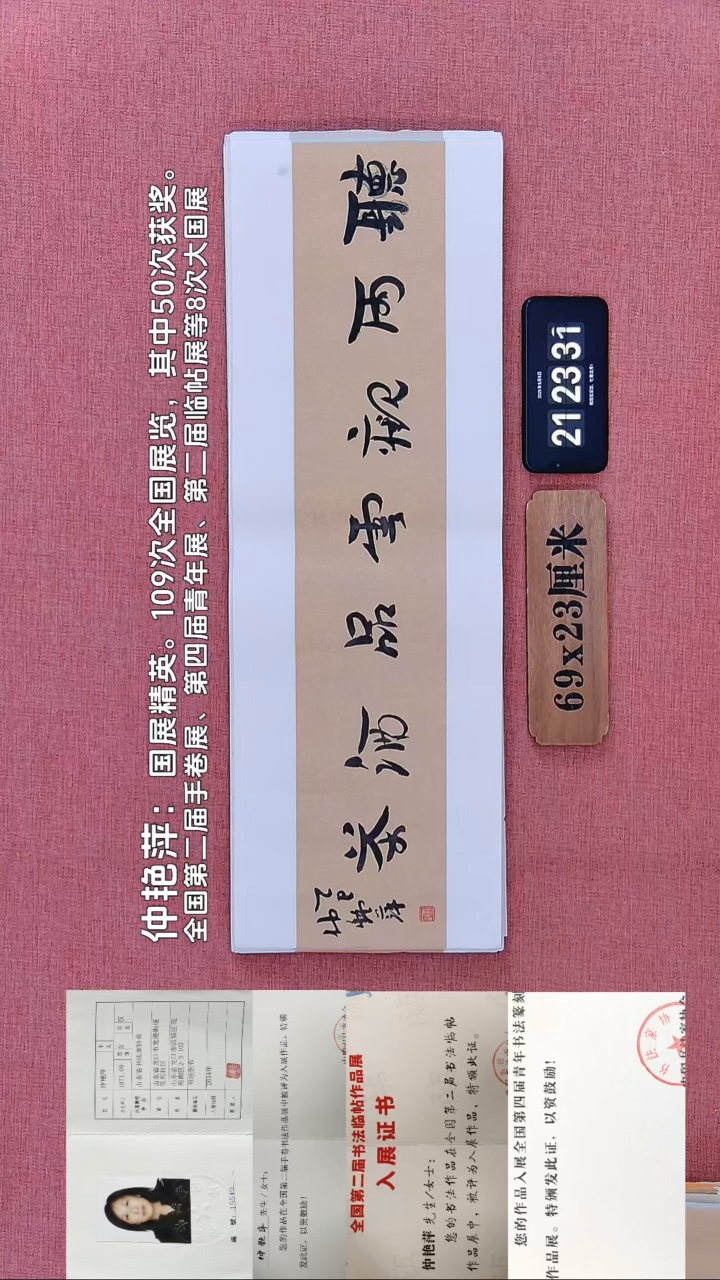 仲艳萍：国展精英。109次全国展览，其中50次获奖。
全国第二届手卷展、第四届青年展、第二届临帖展等8次大国展
聽雨观雪品酒茶
乙巳
仲艳萍
21 23 31
69x23厘米
仲艳萍
山东省书法家协会
仲艳萍 先生/女士：
您的作品在全国第二届手卷书法作品展中被评为入展作品，特颁
发此证，以资鼓励！
全国第二届书法临帖作品展
入展证书
仲艳萍 先生/女士：
您的书法作品在全国第二届书法临帖
作品展中，被评为入展作品，特颁此证。
您的作品入展全国第四届青年书法篆刻
作品展。特颁发此证，以资鼓励！